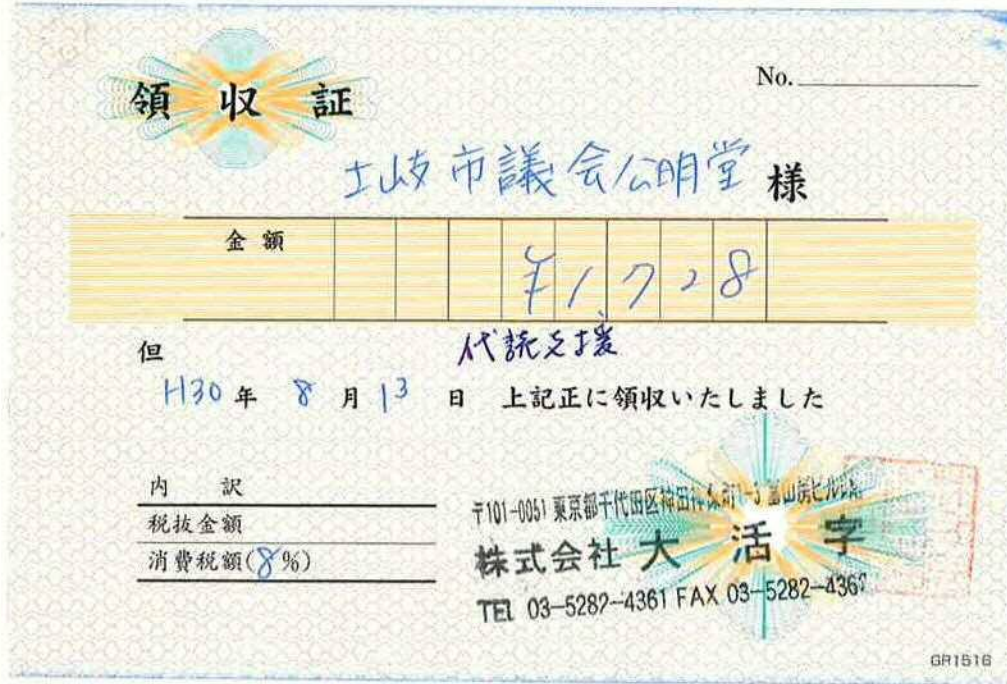 領収証
No.
土岐市議会公明堂 様
金額 ¥1,728
但 代読支援
H30年 8月13日 上記正に領収いたしました
内訳
税抜金額
消費税額(8%)
〒101-0051 東京都千代田区神田神保町1-3 冨山房ビル
株式会社 大活字
TEL 03-5282-4361 FAX 03-5282-4362
GR1516